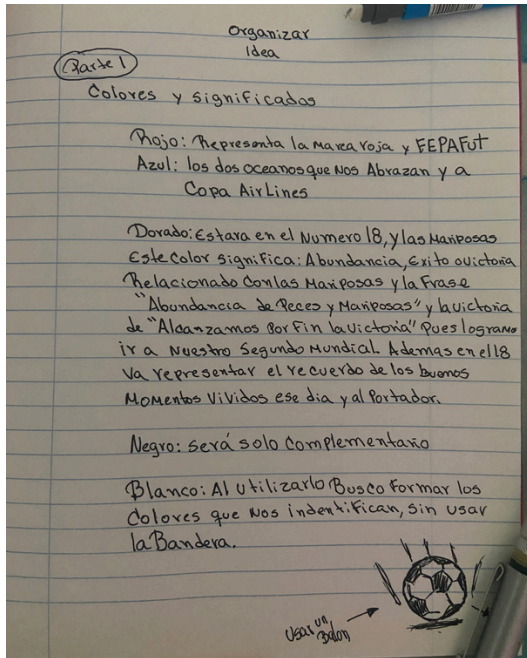 Organizar
Idea
Parte 1
Colores y significados
Rojo: Representa la Marea roja y FEPAFut
Azul: los dos oceanos que Nos Abrazan y a
Copa AirLines
Dorado: Estara en el Numero 18, y las Mariposas
Este color significa: Abundancia, Exito o victoria
Relacionado Con las Mariposas y la Frase
"Abundancia de Peces y Mariposas" y la victoria
de "Alcanzamos Por Fin la victoria" Pues logramo
ir a Nuestro Segundo Mundial. Ademas en el 18
Va representar el recuerdo de los buenos
Momentos Vividos ese dia y al Portador.
Negro: será solo Complementario
Blanco: Al Utilizarlo Busco Formar los
Colores que Nos indentifican, sin usar
la Bandera.
Usar un
Balon